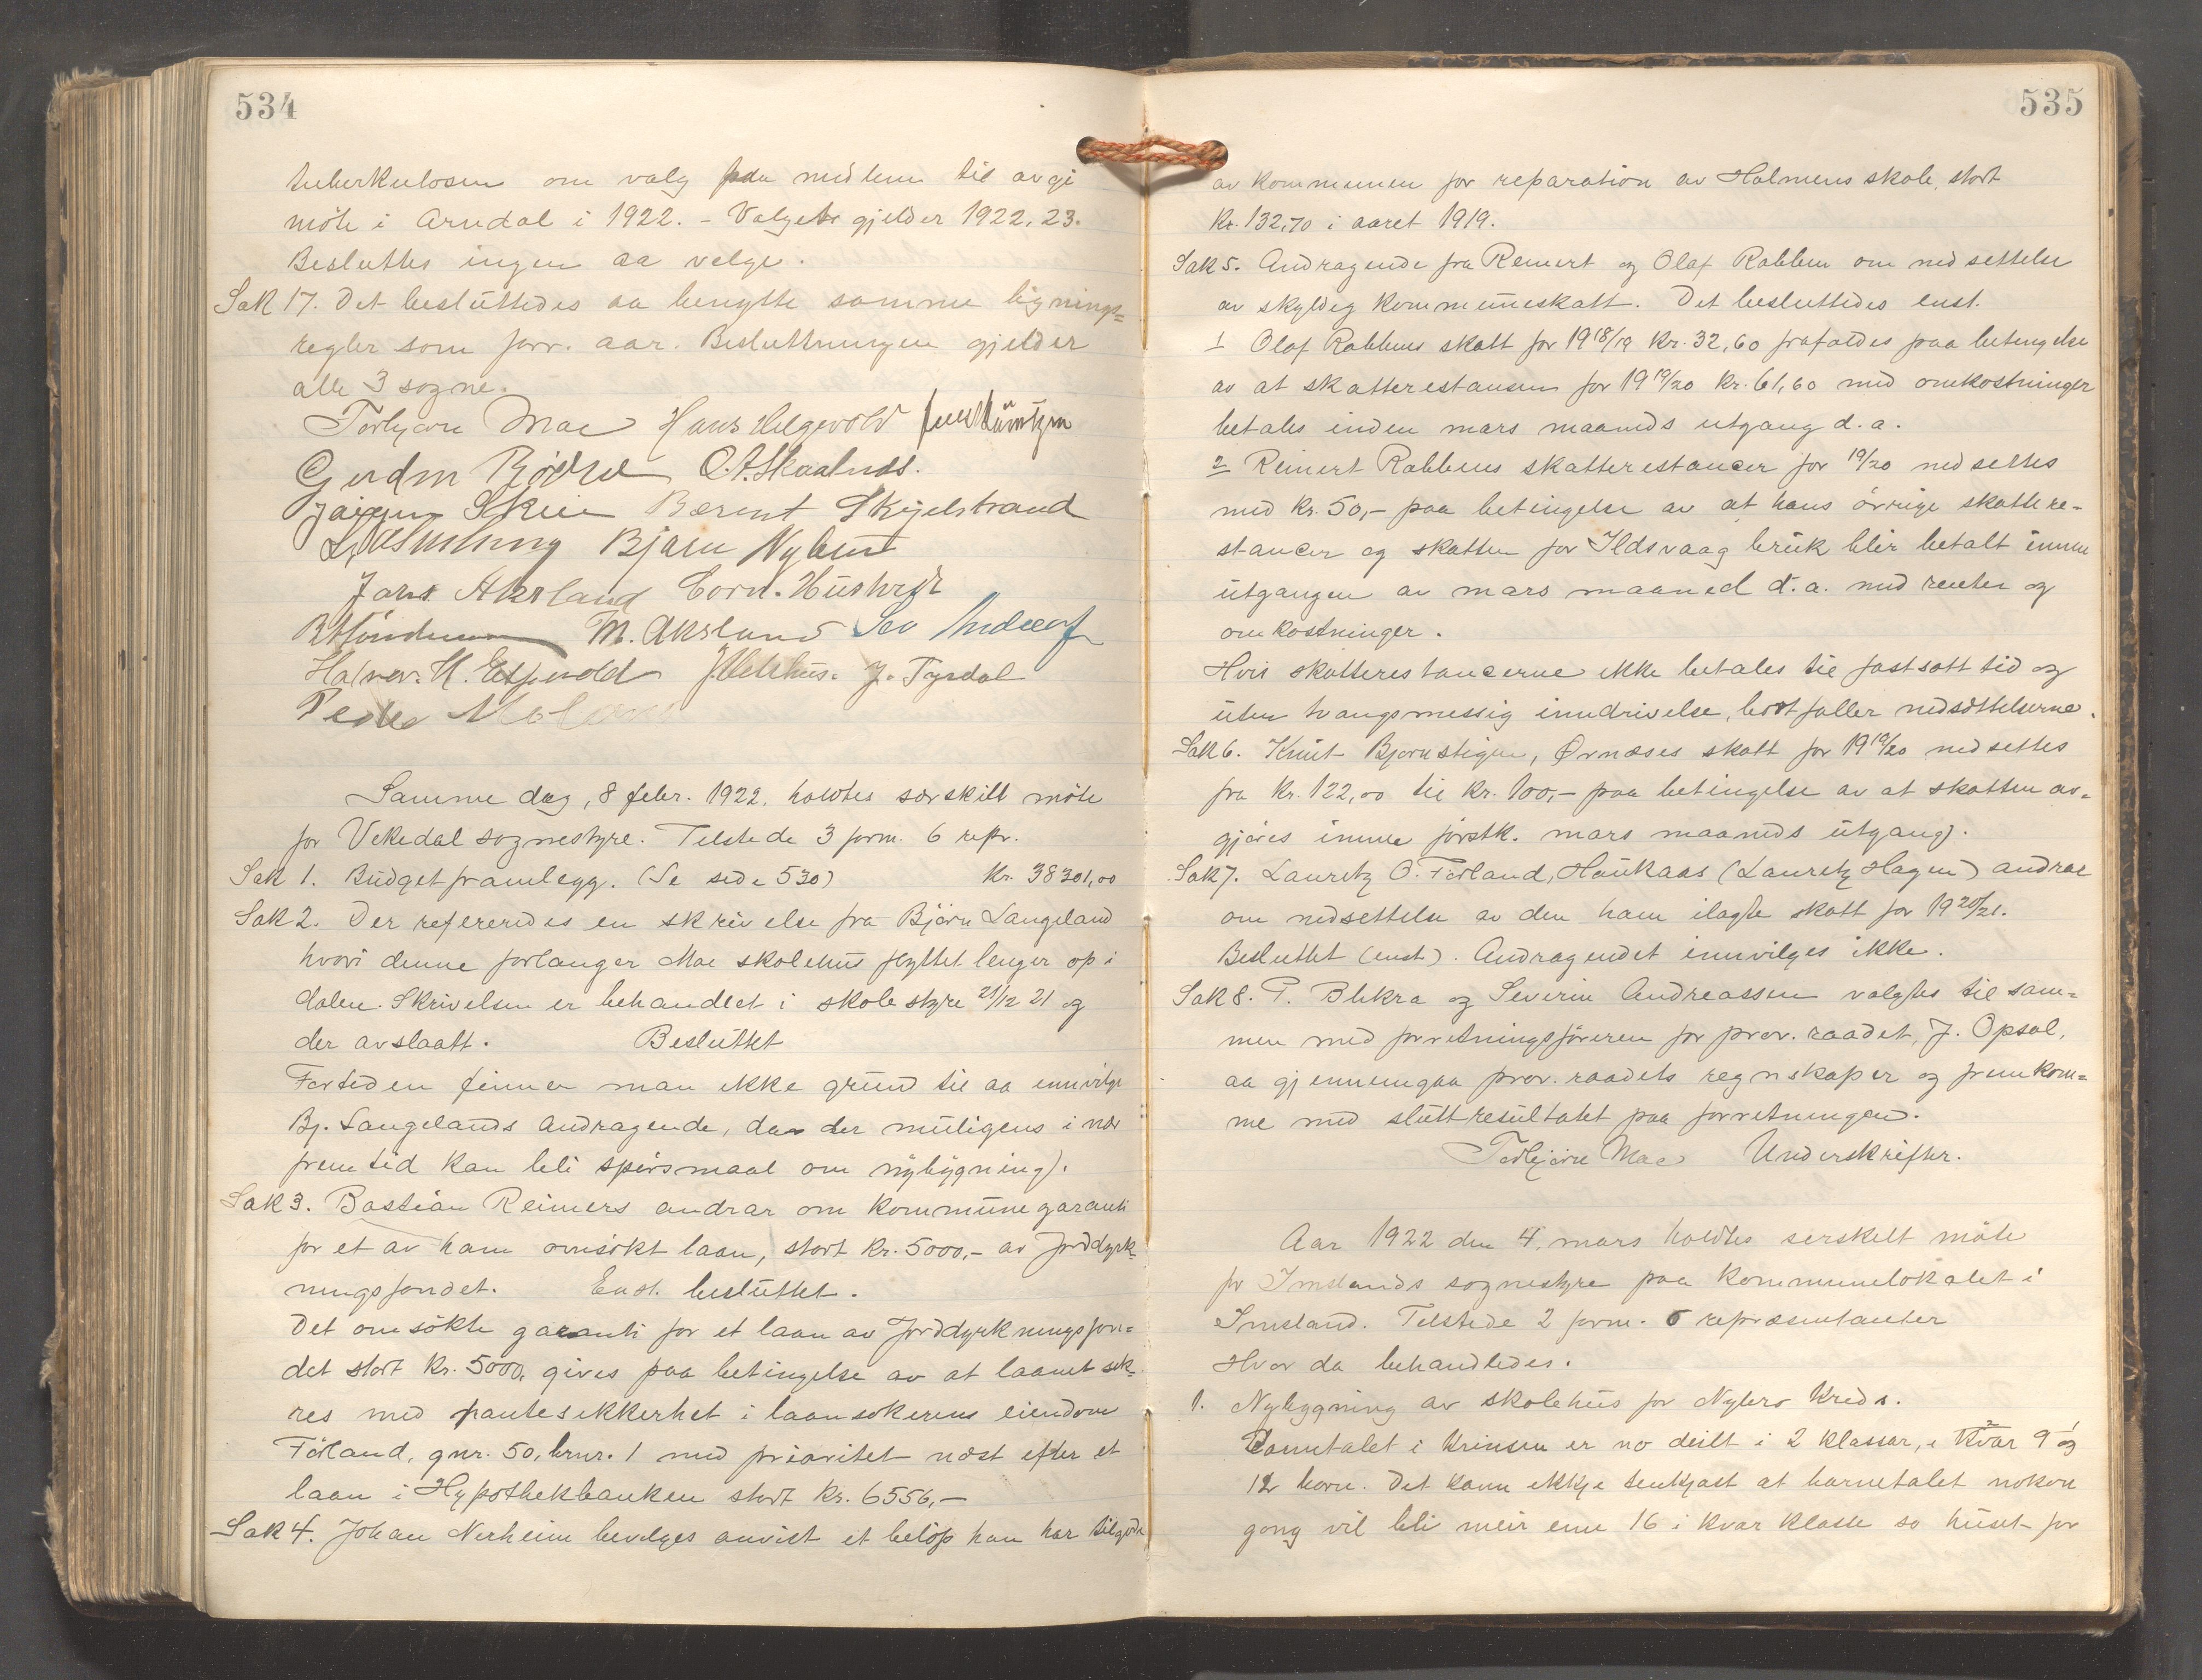 534
tuberkulosen om valg paa medlem til avgi
möte i Arndal i 1922. - Valget gjelder 1922, 23.
Besluttes ingen aa velge.
Sak 17. Det besluttedes aa benytte samme lignings=
regler som forr. aar. Beslutningen gjelder
alle 3 sogne.
Torbjørn Mae Hans Helgevold
Gudm O. A. Skaalnes.
Skeie Berent Skjelstrand
Bjarn Nylund
Jons Aksland Corn.
M. Aksland Sev Andreas
Halvor. H. J. Tysdal
Peder Moland
Samme dag, 8 febr. 1922. holdtes særskilt möte
for Vikedal sognestyre. Tilstede 3 form. 6 repr.
Sak 1. Budgetframlegg. (Se side 530) Kr. 38301,00
Sak 2. Der refereredes en skrivelse fra Björn Langeland
hvori denne forlanger Mae skolehus flyttet lenger op i
dalen. Skrivelsen er behandlet i skolestyre 21/12 21 og
der avslaatt. Besluttet
Fortiden finner man ikke grund til aa innvilge
Bj. Langelands Andragende, da der muligens i nær
fremtid kan bli spörsmaal om nybygning).
Sak 3. Bastian Reimers andrar om kommunegaranti
for et av ham omsökt laan, stort Kr. 5000,- av Jorddyrk-
ningsfondet. Enst. besluttet.
Det omsökte garanti for et laan av Jorddyrkningsfon=
det stort Kr. 5000, gives paa betingelse av at laanet sik-
res med pantesikkerhet i laansökerens eiendom
Förland, gnr. 50, brnr. 1 med prioritet næst efter et
laan i Hypothekbanken stort Kr. 6556,-
Sak 4. Johan Nerheim bevilges anvist et belöp han har tilgode
535
av kommunen for reparation av Holmens skole, stort
Kr. 132,70 i aaret 1919.
Sak 5. Andragende fra Reinert og Olaf Rabben om nedsettelse
av skyldig kommuneskatt. Det besluttedes enst.
1 Olaf Rabbens skatt for 1918/19 Kr. 32,60 frafaldes paa betingelse
av at skatterestansen for 1919/20 Kr. 61,60 med omkostninger
betales inden mars maaneds utgang d. a.
2 Reinert Rabbens skatterestancer for 19/20 nedsettes
med Kr. 50,- paa betingelse av at hans övrige skattere-
stancer og skatten for Ildsvaag bruk blir betalt innen
utgangen av mars maaned d. a. med renter og
omkostninger.
Hvis skatterestancerne ikke betales til fastsatt tid og
uten tvangsmessig inndrivelse, bortfaller nedsættelserne.
Sak 6. Knut Bjørnstigen, Ørnæses skatt for 1919/20 nedsettes
fra Kr. 122,00 til Kr. 100,- paa betingelse av at skatten av=
gjöres innen förstk. mars maaneds utgang).
Sak 7. Lauretz O. Förland, Haukaas (Lauretz Hagen) andrar
om nedsettelse av den ham ilagte skatt for 1920/21.
Besluttet (enst). Andragendet innvilges ikke.
Sak 8. P. Blikra og Severin Andreassen valgtes til sam=
men med forretningsföreren for prov. raadet, J. Opsal,
aa gjennemgaa prov. raadets regnskaper og fremkom=
me med sluttresultatet paa forretningen.
Torbjørn Mae Underskrifter.
Aar 1922 den 4. mars holdtes serskelt möte
for Imslands sognestyre paa kommunelokalet i
Imsland. Tilstede 2 form. 6 repræsentanter
Hvor da behandledes.
1. Nybygging av skolehus for Nylers Kreds.
Barnetalet i krinsen er no deilt i 2 klassar, i kvar 9 og
12 born. Det kann ikkje tenkjast at barnetalet nokon
gong vil bli meir enn 16 i kvar klasse so huset for